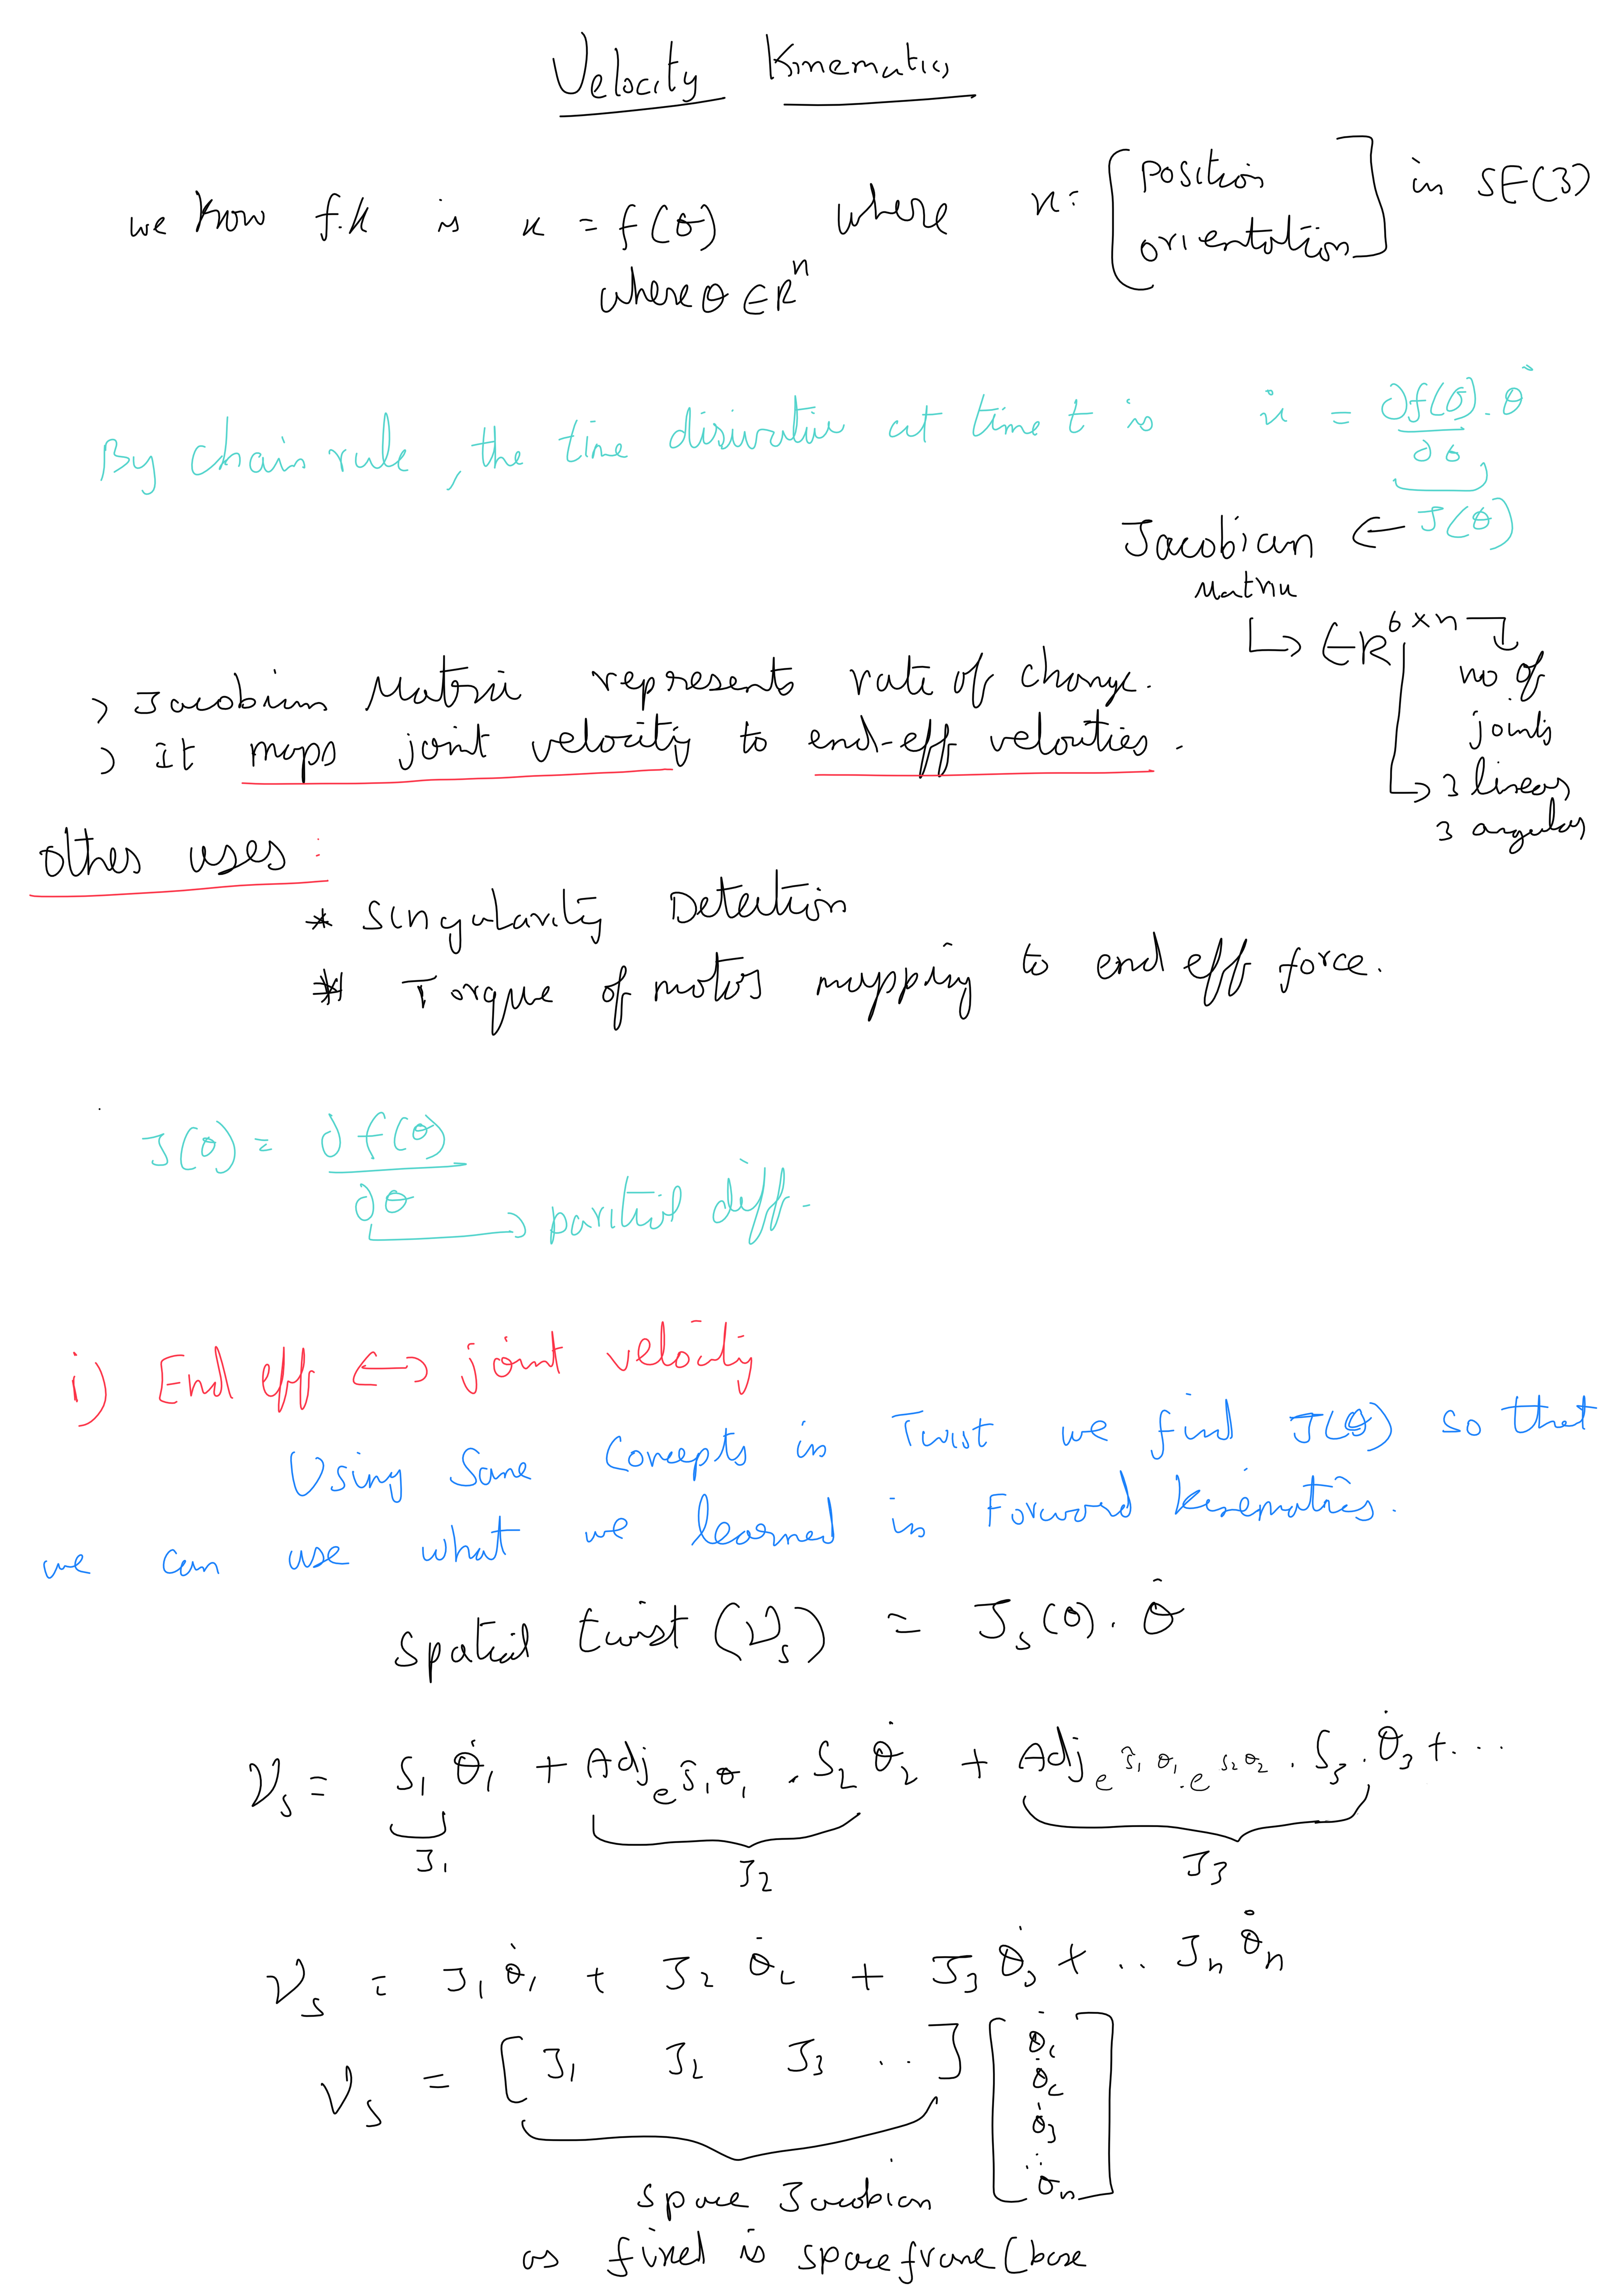 Velocity Kinematics
we know f.k is x = f(θ) where x: [position orientation] in SE(3)
where θ ∈ R^n
By chain rule, the time disivative at time t is ẋ = ∂f(θ)/∂θ . θ̇
Jacobian ← J(θ)
Matrix
↳ ∈ R^6×n → no of joints
↳ 3 linear
3 angular
> Jacobian Matrix represents rate of change.
> it maps joint velocity to end-eff velocities.
other uses :
* Singularity Detection
* Torque of motor mapping to end eff force.
J(θ) = ∂f(θ)/∂θ
→ partial diff.
i) End eff ↔ joint velocity
Using Same Concepts in Twist we find J(θ) so that
we can use what we learned in Forward Kinematics.
Spatial twist (V_s) = J_s(θ). θ̇
V_s = S_1 θ̇_1 + Adj_e^ŝ_1θ_1 . S_2 θ̇_2 + Adj_e^ŝ_1θ_1.e^s_2θ_2 . S_3 . θ̇_3 + ...
J_1 J_2 J_3
V_s = J_1 θ̇_1 + J_2 θ̇_2 + J_3 θ̇_3 + .. J_n θ̇_n
V_s = [J_1 J_2 J_3 ..] [θ̇_1 θ̇_2 θ̇_3 ∴ θ_n]
Space Jacobian
as fixed is space frame (base